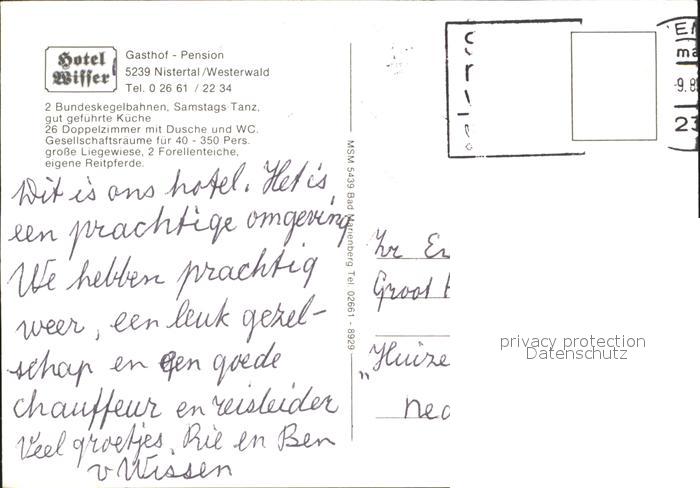 Hotel
Wisser
Gasthof - Pension
5239 Nistertal/Westerwald
Tel. 0 26 61 / 22 34
2 Bundeskegelbahnen, Samstags Tanz,
gut geführte Küche
26 Doppelzimmer mit Dusche und WC.
Gesellschaftsräume für 40 - 350 Pers.
große Liegewiese, 2 Forellenteiche,
eigene Reitpferde.
Dit is ons hotel. Het is
een prachtige omgeving
We hebben prachtig
weer, een leuk gezel-
schap en een goede
chauffeur en reisleider
Veel groetjes. Rie en Ben
v Wissen
MSM 5439 Bad Marienberg Tel. 02661 - 8929
Groot
„Huize
Ned
privacy protection
Datenschutz
-9.8
23